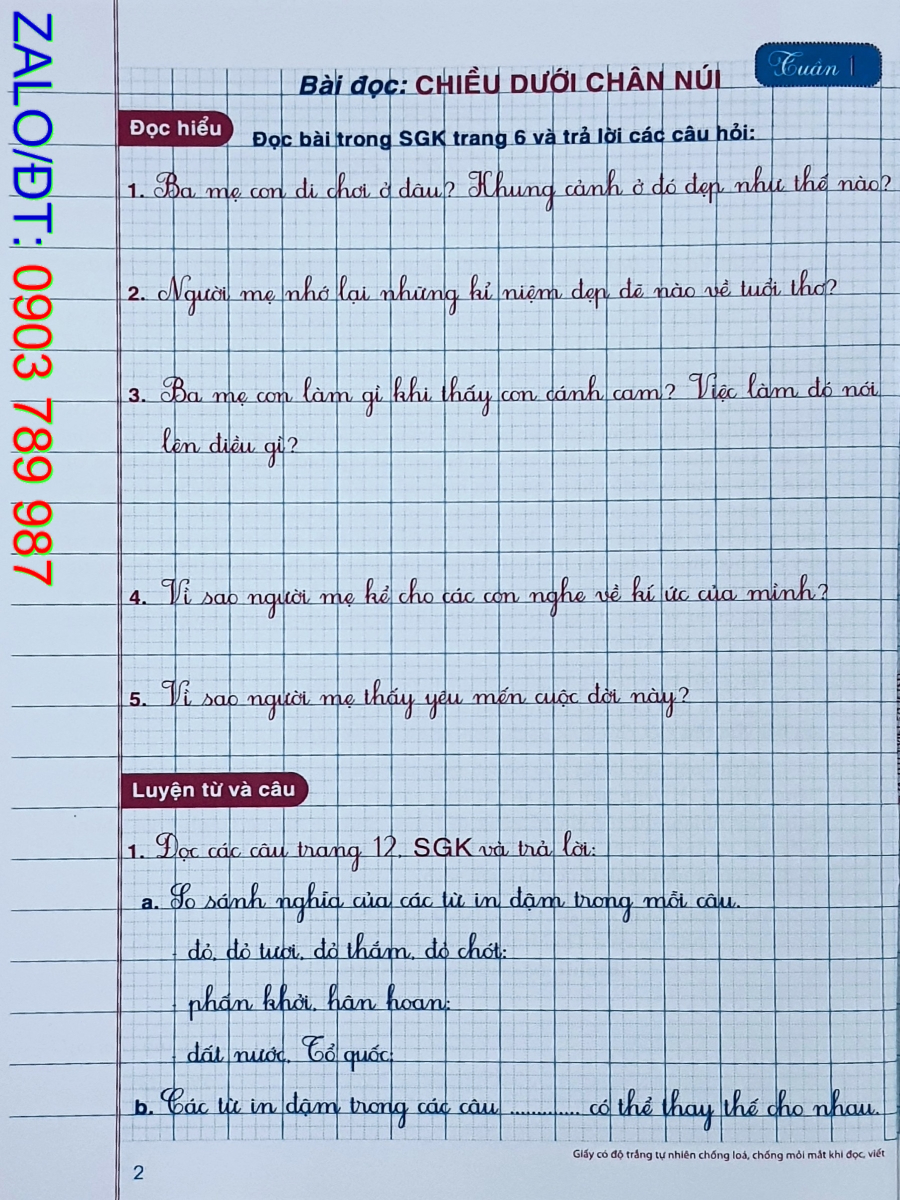 ZALO/ĐT: 0903 789 987
Tuần 1
Bài đọc: CHIỀU DƯỚI CHÂN NÚI
Đọc hiểu
Đọc bài trong SGK trang 6 và trả lời các câu hỏi:
1. Ba mẹ con đi chơi ở đâu? Khung cảnh ở đó đẹp như thế nào?
2. Người mẹ nhớ lại những kỉ niệm đẹp đẽ nào về tuổi thơ?
3. Ba mẹ con làm gì khi thấy con cánh cam? Việc làm đó nói
lên điều gì?
4. Vì sao người mẹ kể cho các con nghe về kí ức của mình?
5. Vì sao người mẹ thấy yêu mến cuộc đời này?
Luyện từ và câu
1. Đọc các câu trang 12, SGK và trả lời:
a. So sánh nghĩa của các từ in đậm trong mỗi câu.
- đỏ, đỏ tươi, đỏ thắm, đỏ chót:
- phấn khởi, hân hoan:
- đất nước, Tổ quốc:
b. Các từ in đậm trong các câu ............. có thể thay thế cho nhau.
Giấy có độ trắng tự nhiên chống loá, chống mỏi mắt khi đọc, viết
2